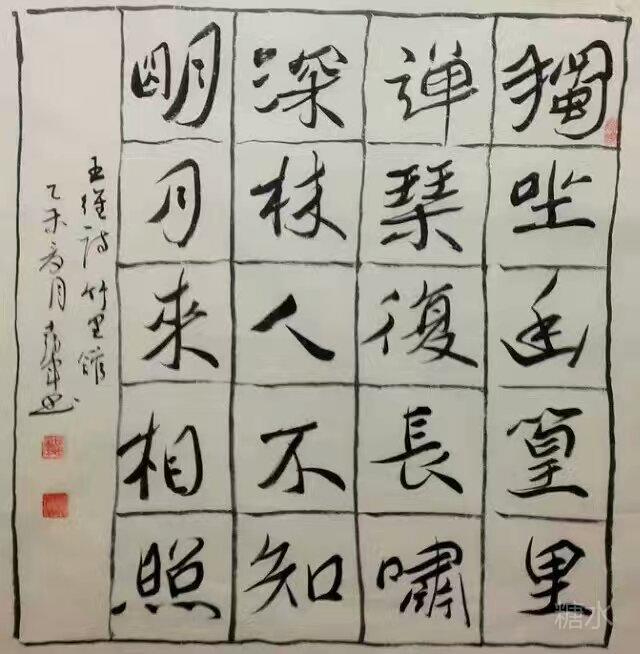 獨坐幽篁里
弹琴復長嘯
深林人不知
明月來相照
王维诗竹里馆
乙未夏月书
糖水